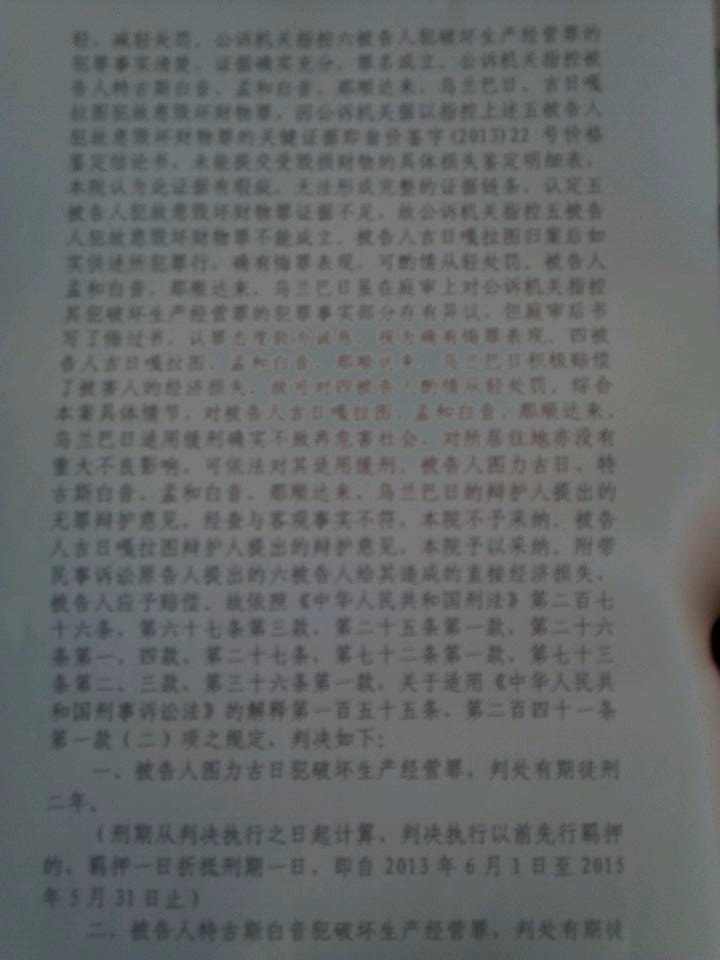 轻、减轻处罚。公诉机关指控六被告人犯破坏生产经营罪的
犯罪事实清楚、证据确实充分，罪名成立。公诉机关指控被
告人特古斯白音、孟和白音、那顺达来、乌兰巴日、吉日嘎
拉图犯故意毁坏财物罪，因公诉机关据以指控上述五被告人
犯故意毁坏财物罪的关键证据即翁价鉴字(2013)22 号价格
鉴定结论书，未能提交受毁损财物的具体损失鉴定明细表，
本院认为此证据有瑕疵，无法形成完整的证据链条，认定五
被告人犯故意毁坏财物罪证据不足，故公诉机关指控五被告
人犯故意毁坏财物罪不能成立。被告人吉日嘎拉图归案后如
实供述所犯罪行，确有悔罪表现，可酌情从轻处罚。被告人
孟和白音、那顺达来、乌兰巴日虽在庭审上对公诉机关指控
其犯破坏生产经营罪的犯罪事实部分存有异议，但庭审后书
写了悔过书，认罪态度较为诚恳，视为确有悔罪表现，四被
告人吉日嘎拉图、孟和白音、那顺达来、乌兰巴日积极赔偿
了被害人的经济损失，故可对四被告人酌情从轻处罚。综合
本案具体情节，对被告人吉日嘎拉图、孟和白音、那顺达来、
乌兰巴日适用缓刑确实不致再危害社会，对所居住地亦没有
重大不良影响，可依法对其适用缓刑。被告人图力古日、特
古斯白音、孟和白音、那顺达来、乌兰巴日的辩护人提出的
无罪辩护意见，经查与客观事实不符，本院不予采纳。被告
人吉日嘎拉图辩护人提出的辩护意见，本院予以采纳。附带
民事诉讼原告人提出的六被告人给其造成的直接经济损失，
被告人应予赔偿。故依照《中华人民共和国刑法》第二百七
十六条、第六十七条第三款、第二十五条第一款、第二十六
条第一、四款、第二十七条、第七十二条第一款、第七十三
条第二、三款、第三十六条第一款，关于适用《中华人民共
和国刑事诉讼法》的解释第一百五十五条、第二百四十一条
第一款（二）项之规定，判决如下：
一、被告人图力古日犯破坏生产经营罪，判处有期徒刑
二年。
（刑期从判决执行之日起计算，判决执行以前先行羁押
的，羁押一日折抵刑期一日，即自 2013 年 6 月 1 日至 2015
年 5 月 31 日止）
二、被告人特古斯白音犯破坏生产经营罪，判处有期徒